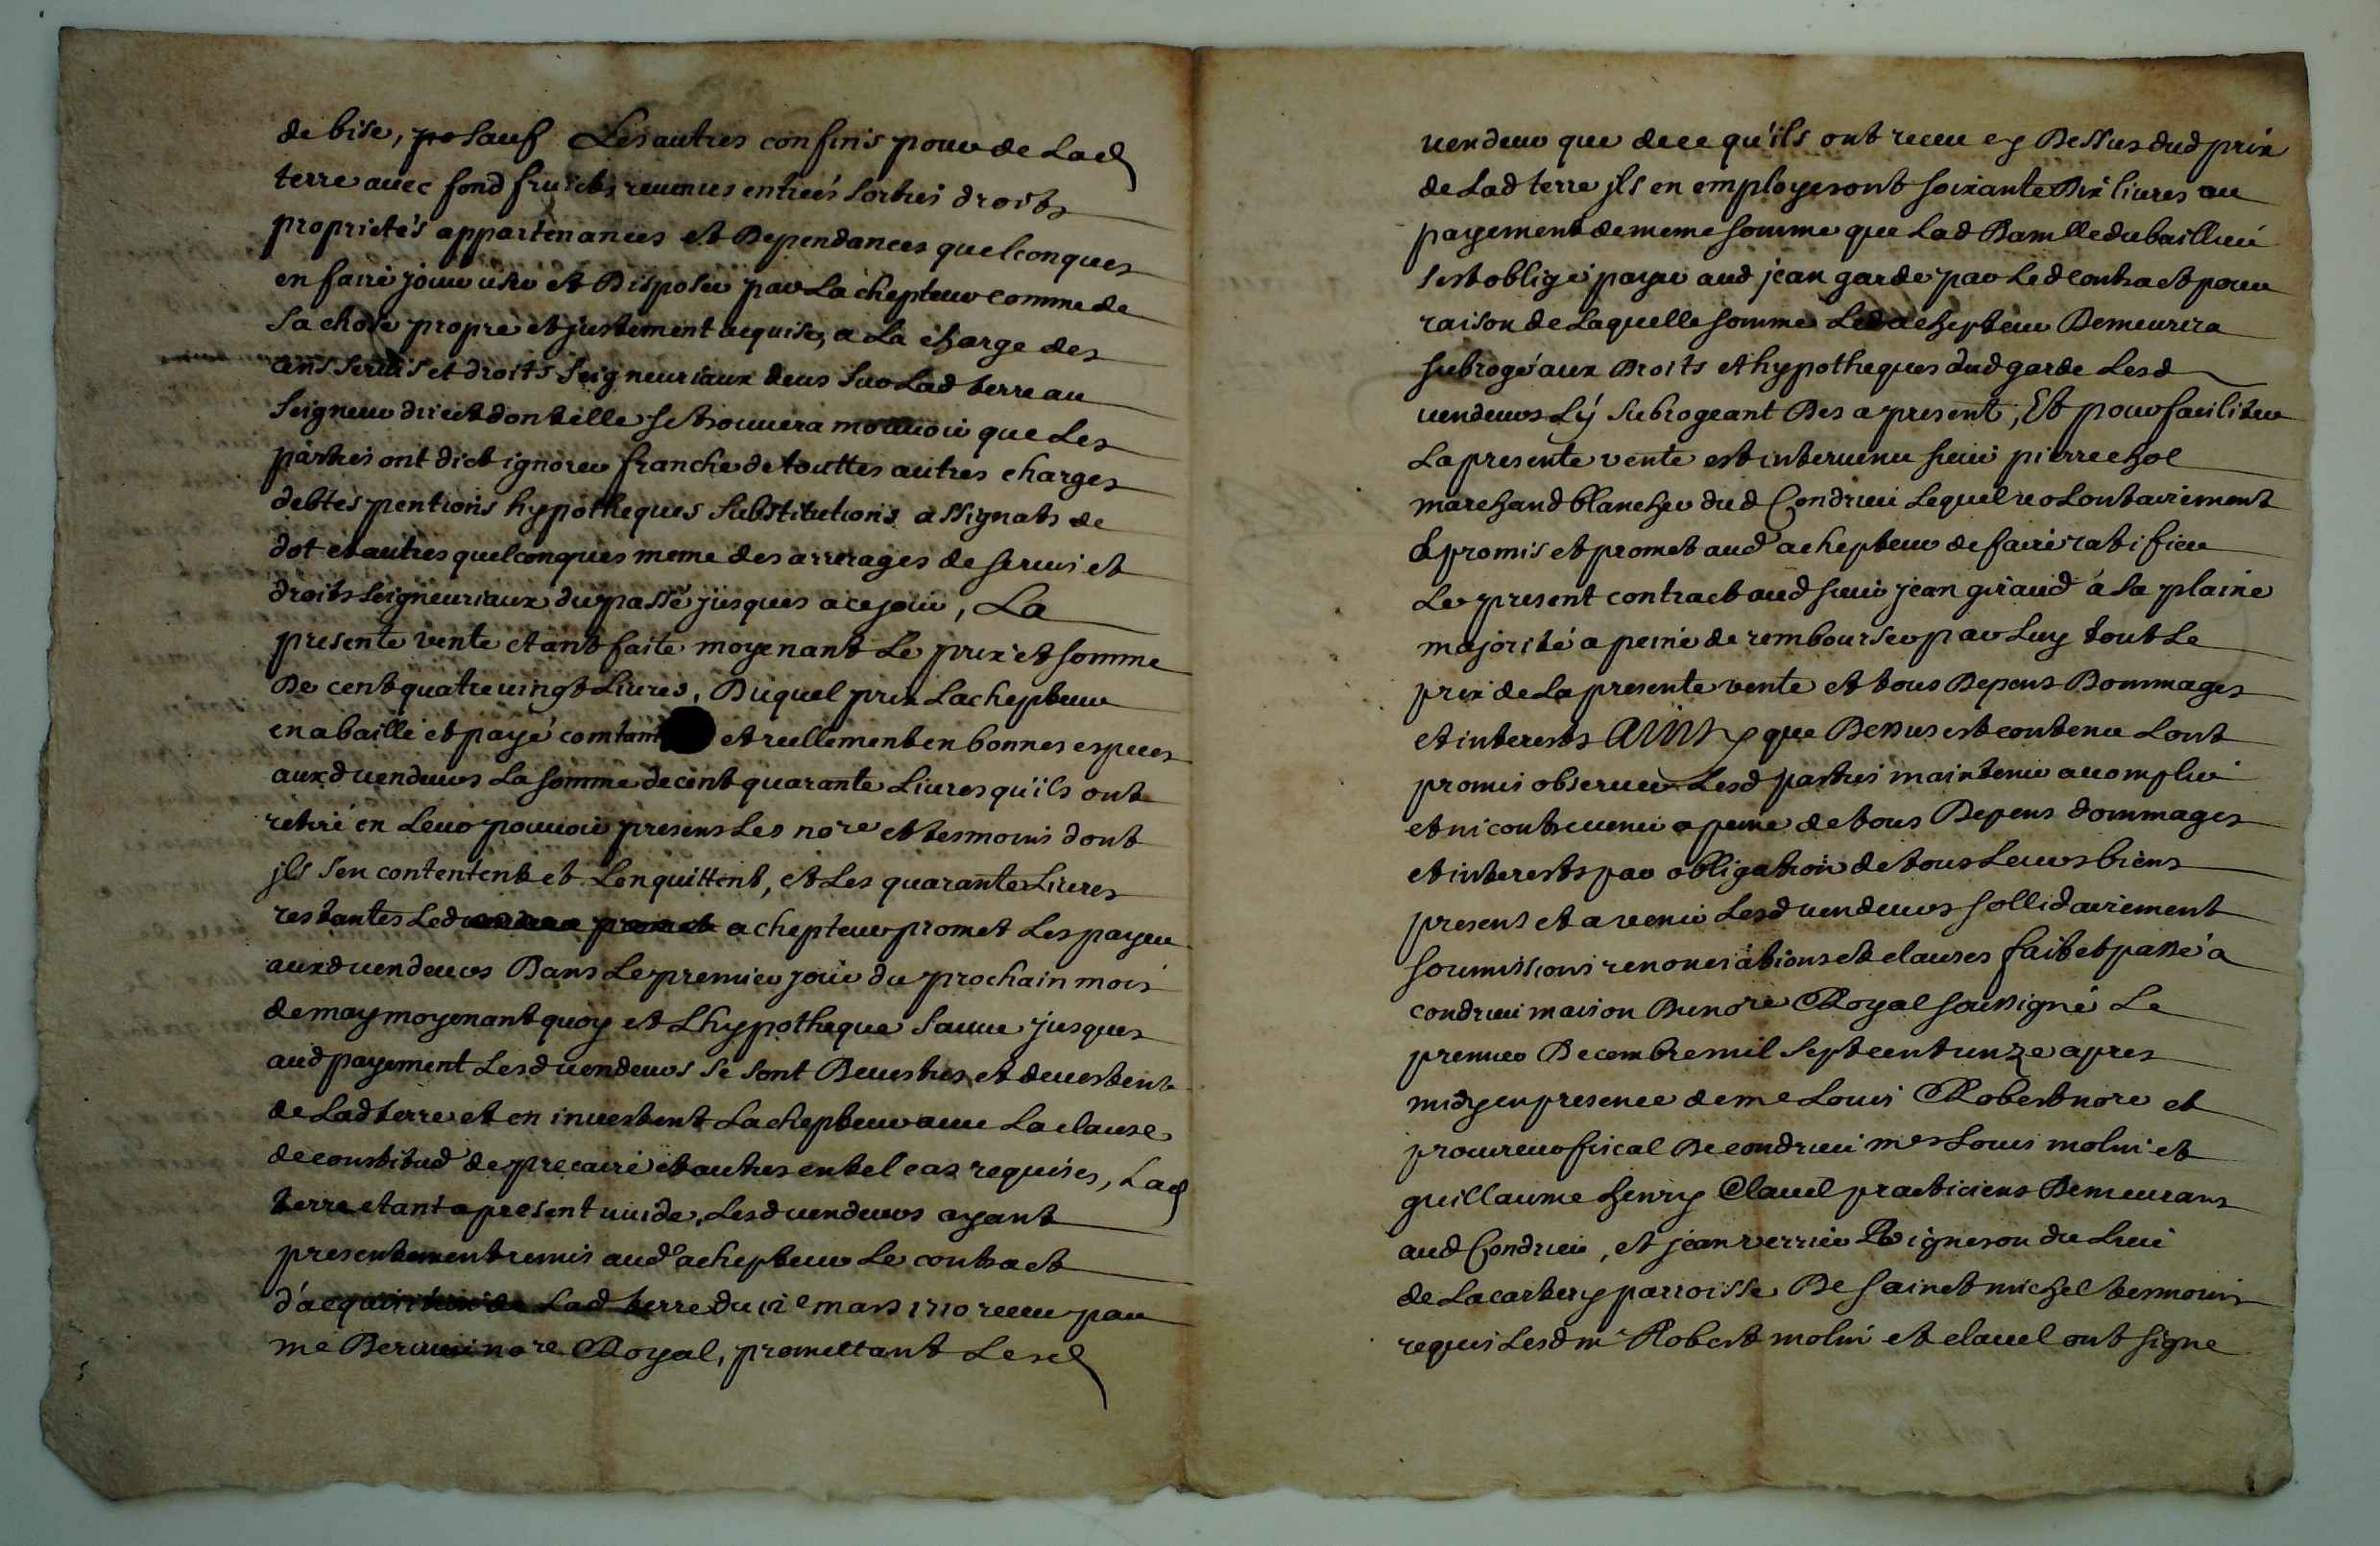 de bise, po sauf Les autres confins pour de Lad
terre avec fond fruicts revenus entrees sorties droits
proprietés appartenances et Dependances quelconques
en faire jouir user et Disposer par Lachepteur comme de
sa chose propre et justement acquise, a La charge des
cens servis et droits seigneuriaux deus sur Lad terre au
seigneur direct dont elle se trouvera mouvoir que Les
parties ont dict ignorer franche de touttes autres charges
debtes pentions hypotheques substitutions assignats de
dot et autres quelconques meme des arrerages de servis et
droits seigneuriaux du passé jusques a ce jour, La
presente vente etant faite moyenant Le prix et somme
De cent quatre vingt Livres, Duquel prix Lachepteur
en a baillé et payé comtant et reellement en bonnes especes
auxd vendeurs La somme de cent quarante Livres qu'ils ont
retiré en Leur pouvoir presens Les nore et tesmoins dont
jls s'en contentent et Lenquittent, et Les quarante Livres
restantes Led achepteur promet Les payer
auxd vendeurs Dans Le premier jour du prochain mois
de may moyenant quoy et Lhypotheque sauve jusques
aud payement Lesd vendeurs se sont Devestus et devestent
de Lad terre et en investent Lachepteur avec La clause
de constitud de precaire et autres en tel cas requises, Lad
terre etant a present vuide, Lesd vendeurs ayant
presentement remis aud achepteur Le contract
d'acquisition de Lad terre du 12e mars 1710 receu par
me nore Royal, promettant Lesd
vendeur que de ce qu'ils ont receu cy Dessus dud prix
de Lad terre jls en employeront soixante Dix livres au
payement de meme somme que Lad Damlle du baillieu
sest obligé payer aud jean garde par Led contract pour
raison de Laquelle somme Led achepteur Demeurera
subrogé aux Droits et hypotheques dud garde Lesd
vendeurs Ly subrogeant Des a present, Et pour faciliter
La presente vente est intervenu sieur pierre chol
marchand blancher dud Condrieu Lequel volontairement
a promis et promet aud achepteur de faire ratifier
Le present contract aud sieur jean giraud a sa plaine
majorité a peine de rembourser par Luy tout Le
prix de La presente vente et tous Depens Dommages
et interests Ainsy que Dessus est contenu Lont
promis observer Lesd parties maintenir accomplir
et ni contrevenir a peine de tous Depens dommages
et interests par obligation de tous Leurs biens
presens et a venir Lesd vendeurs sollidairement
soumissions renonciations et clauses fait et passé a
condrieu maison Du nore Royal soussigné Le
premier Decembre mil sept cent unze apres
midy en presence de me Louis Robert nore et
procureur fiscal De condrieu mes Louis molin et
guillaume henry Clavel practiciens Demeurans
aud Condrieu, et jean verrier Vigneron du Lieu
de Lacartery parroisse De sainct michel tesmoins
requis Lesd m Robert molin et clavel ont signe